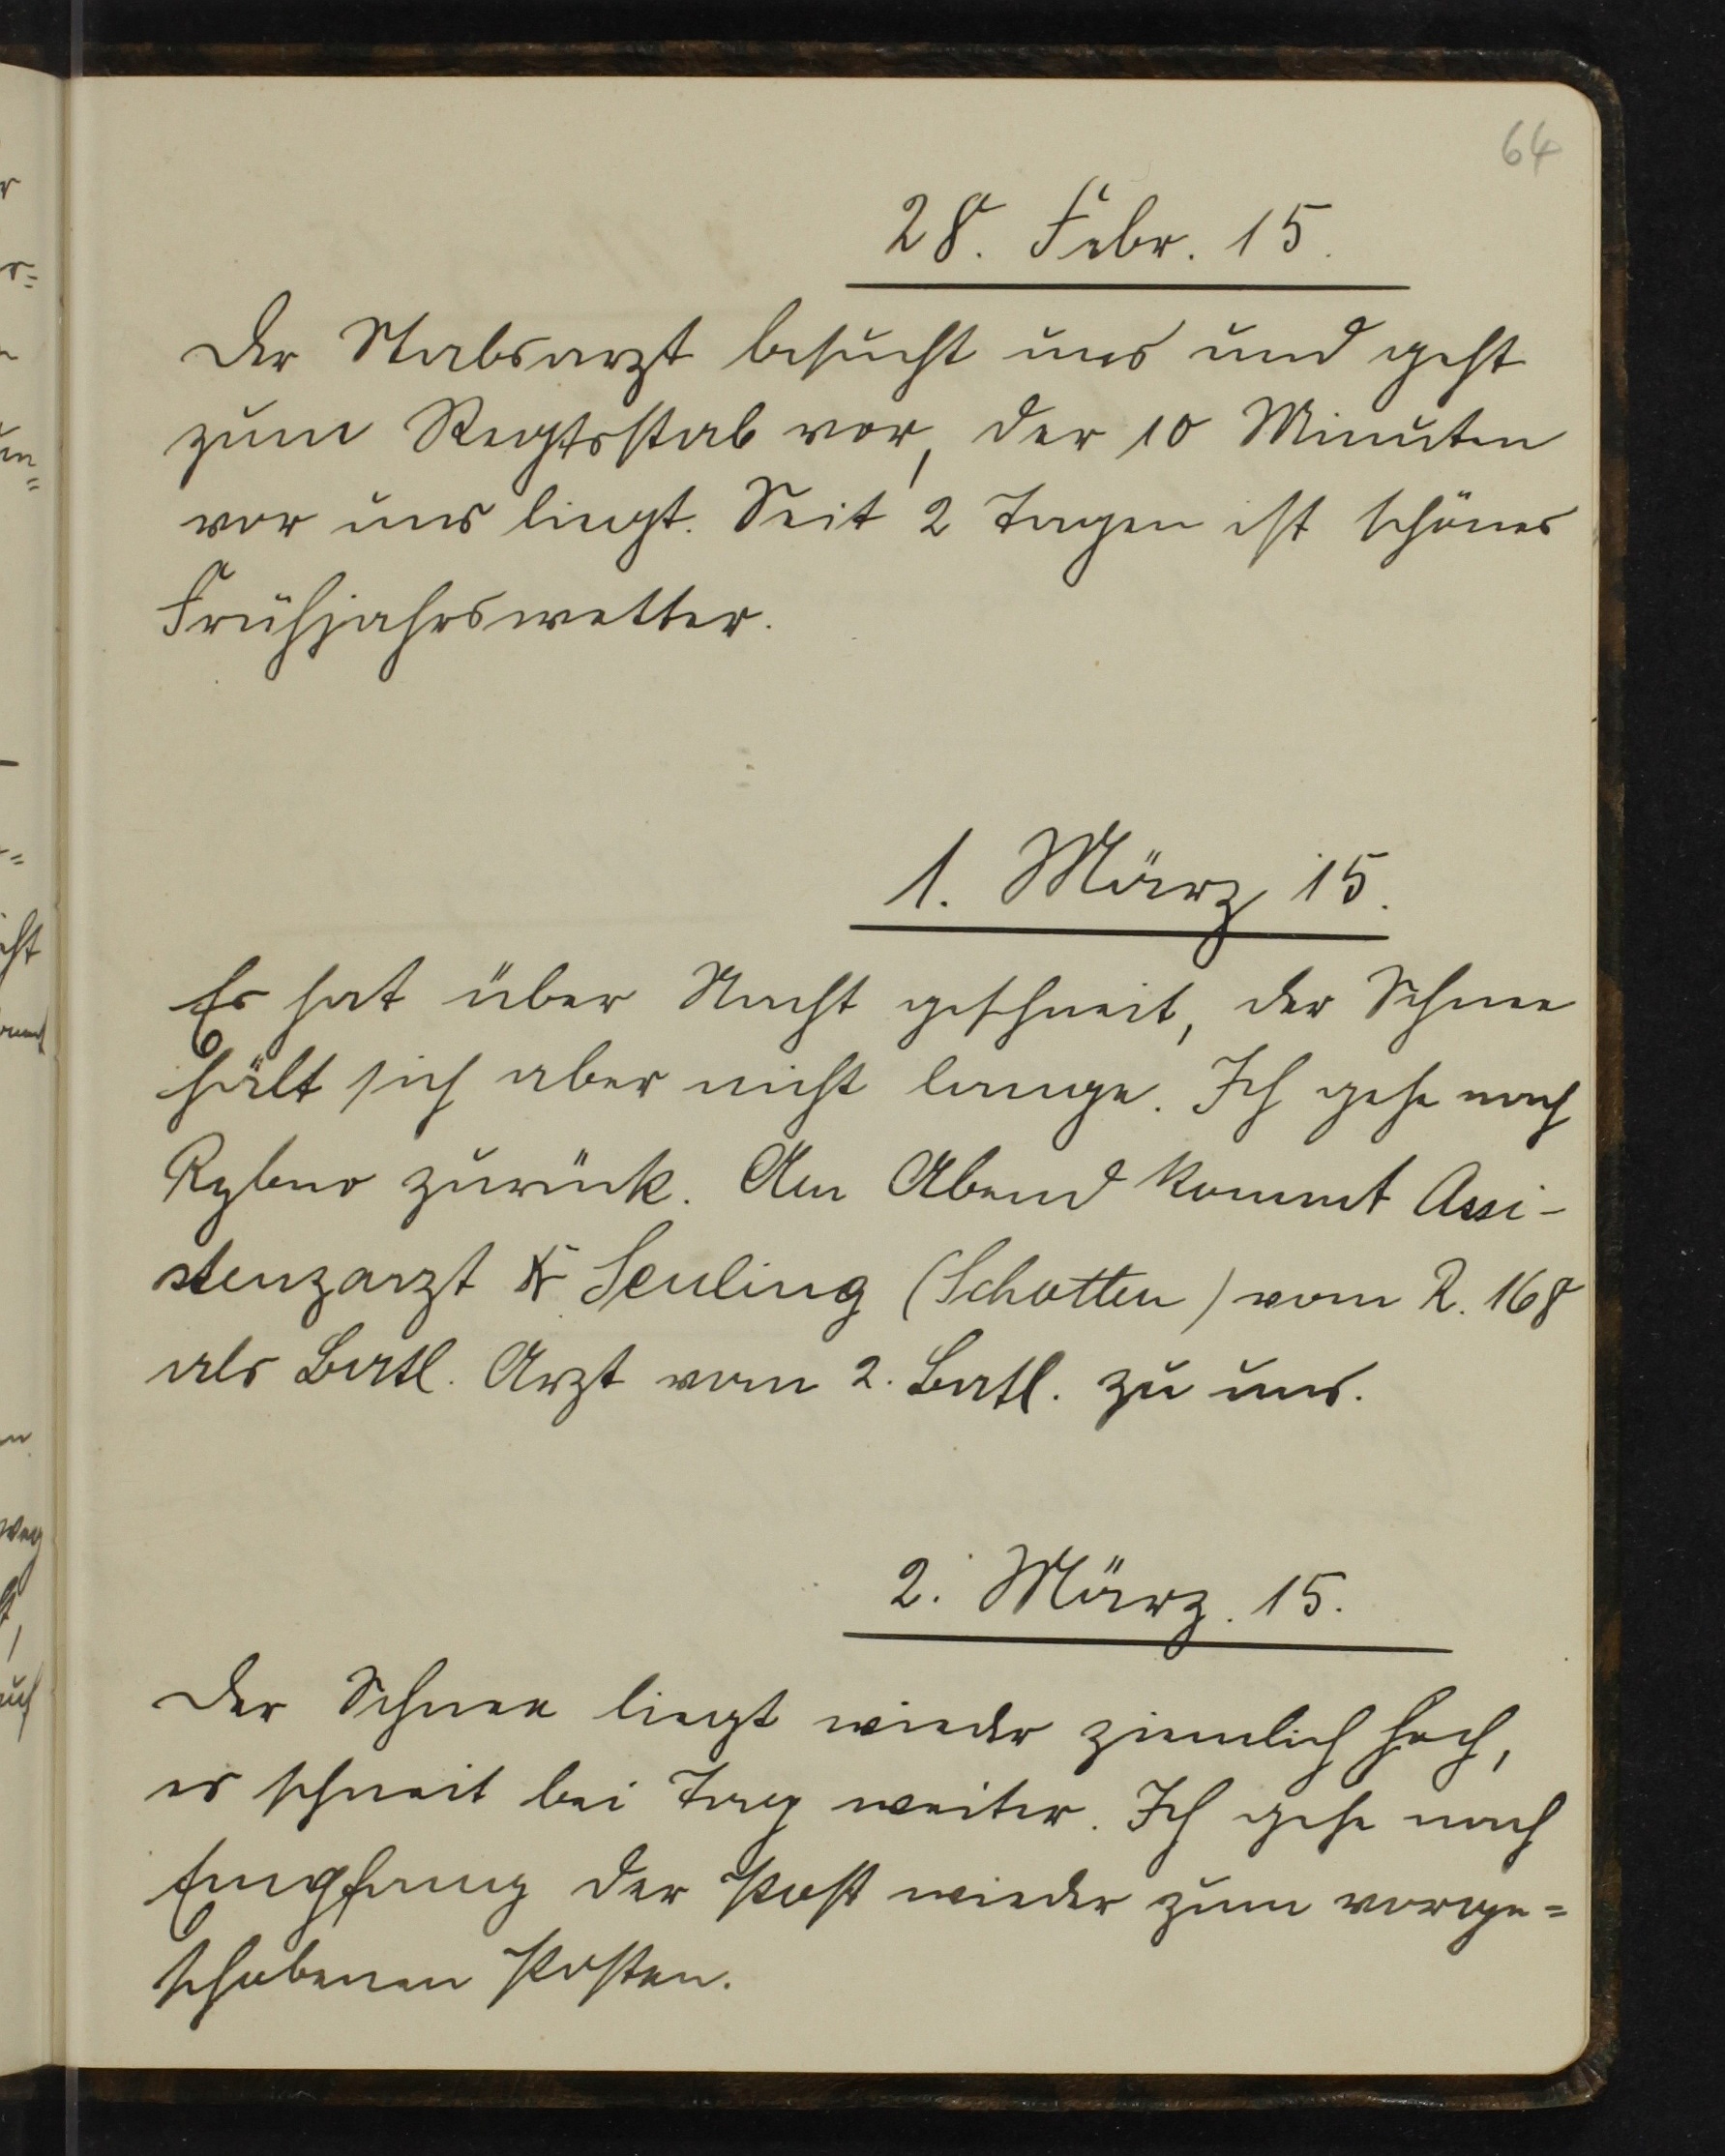 64
28. Febr. 15.
Der Stabsarzt besucht uns und geht
zum Regtsstab vor, der 10 Minuten
vor uns liegt. Seit 2 Tagen ist schönes
Frühjahrswetter.
1. März 15.
Es hat über Nacht geschneit, der Schnee
hält sich aber nicht lange. Ich gehe nach
Rybno zurück. Am Abend kommt Assi-
stenzarzt Seuling (Schotten) vom R. 168
als Batl. Arzt vom 2. Batl. zu uns.
2. März. 15.
Der Schnee liegt wieder ziemlich hoch,
es schneit bei Tag weiter. Ich gehe nach
Empfang der Post wieder zum vorge=
schobenen Posten.